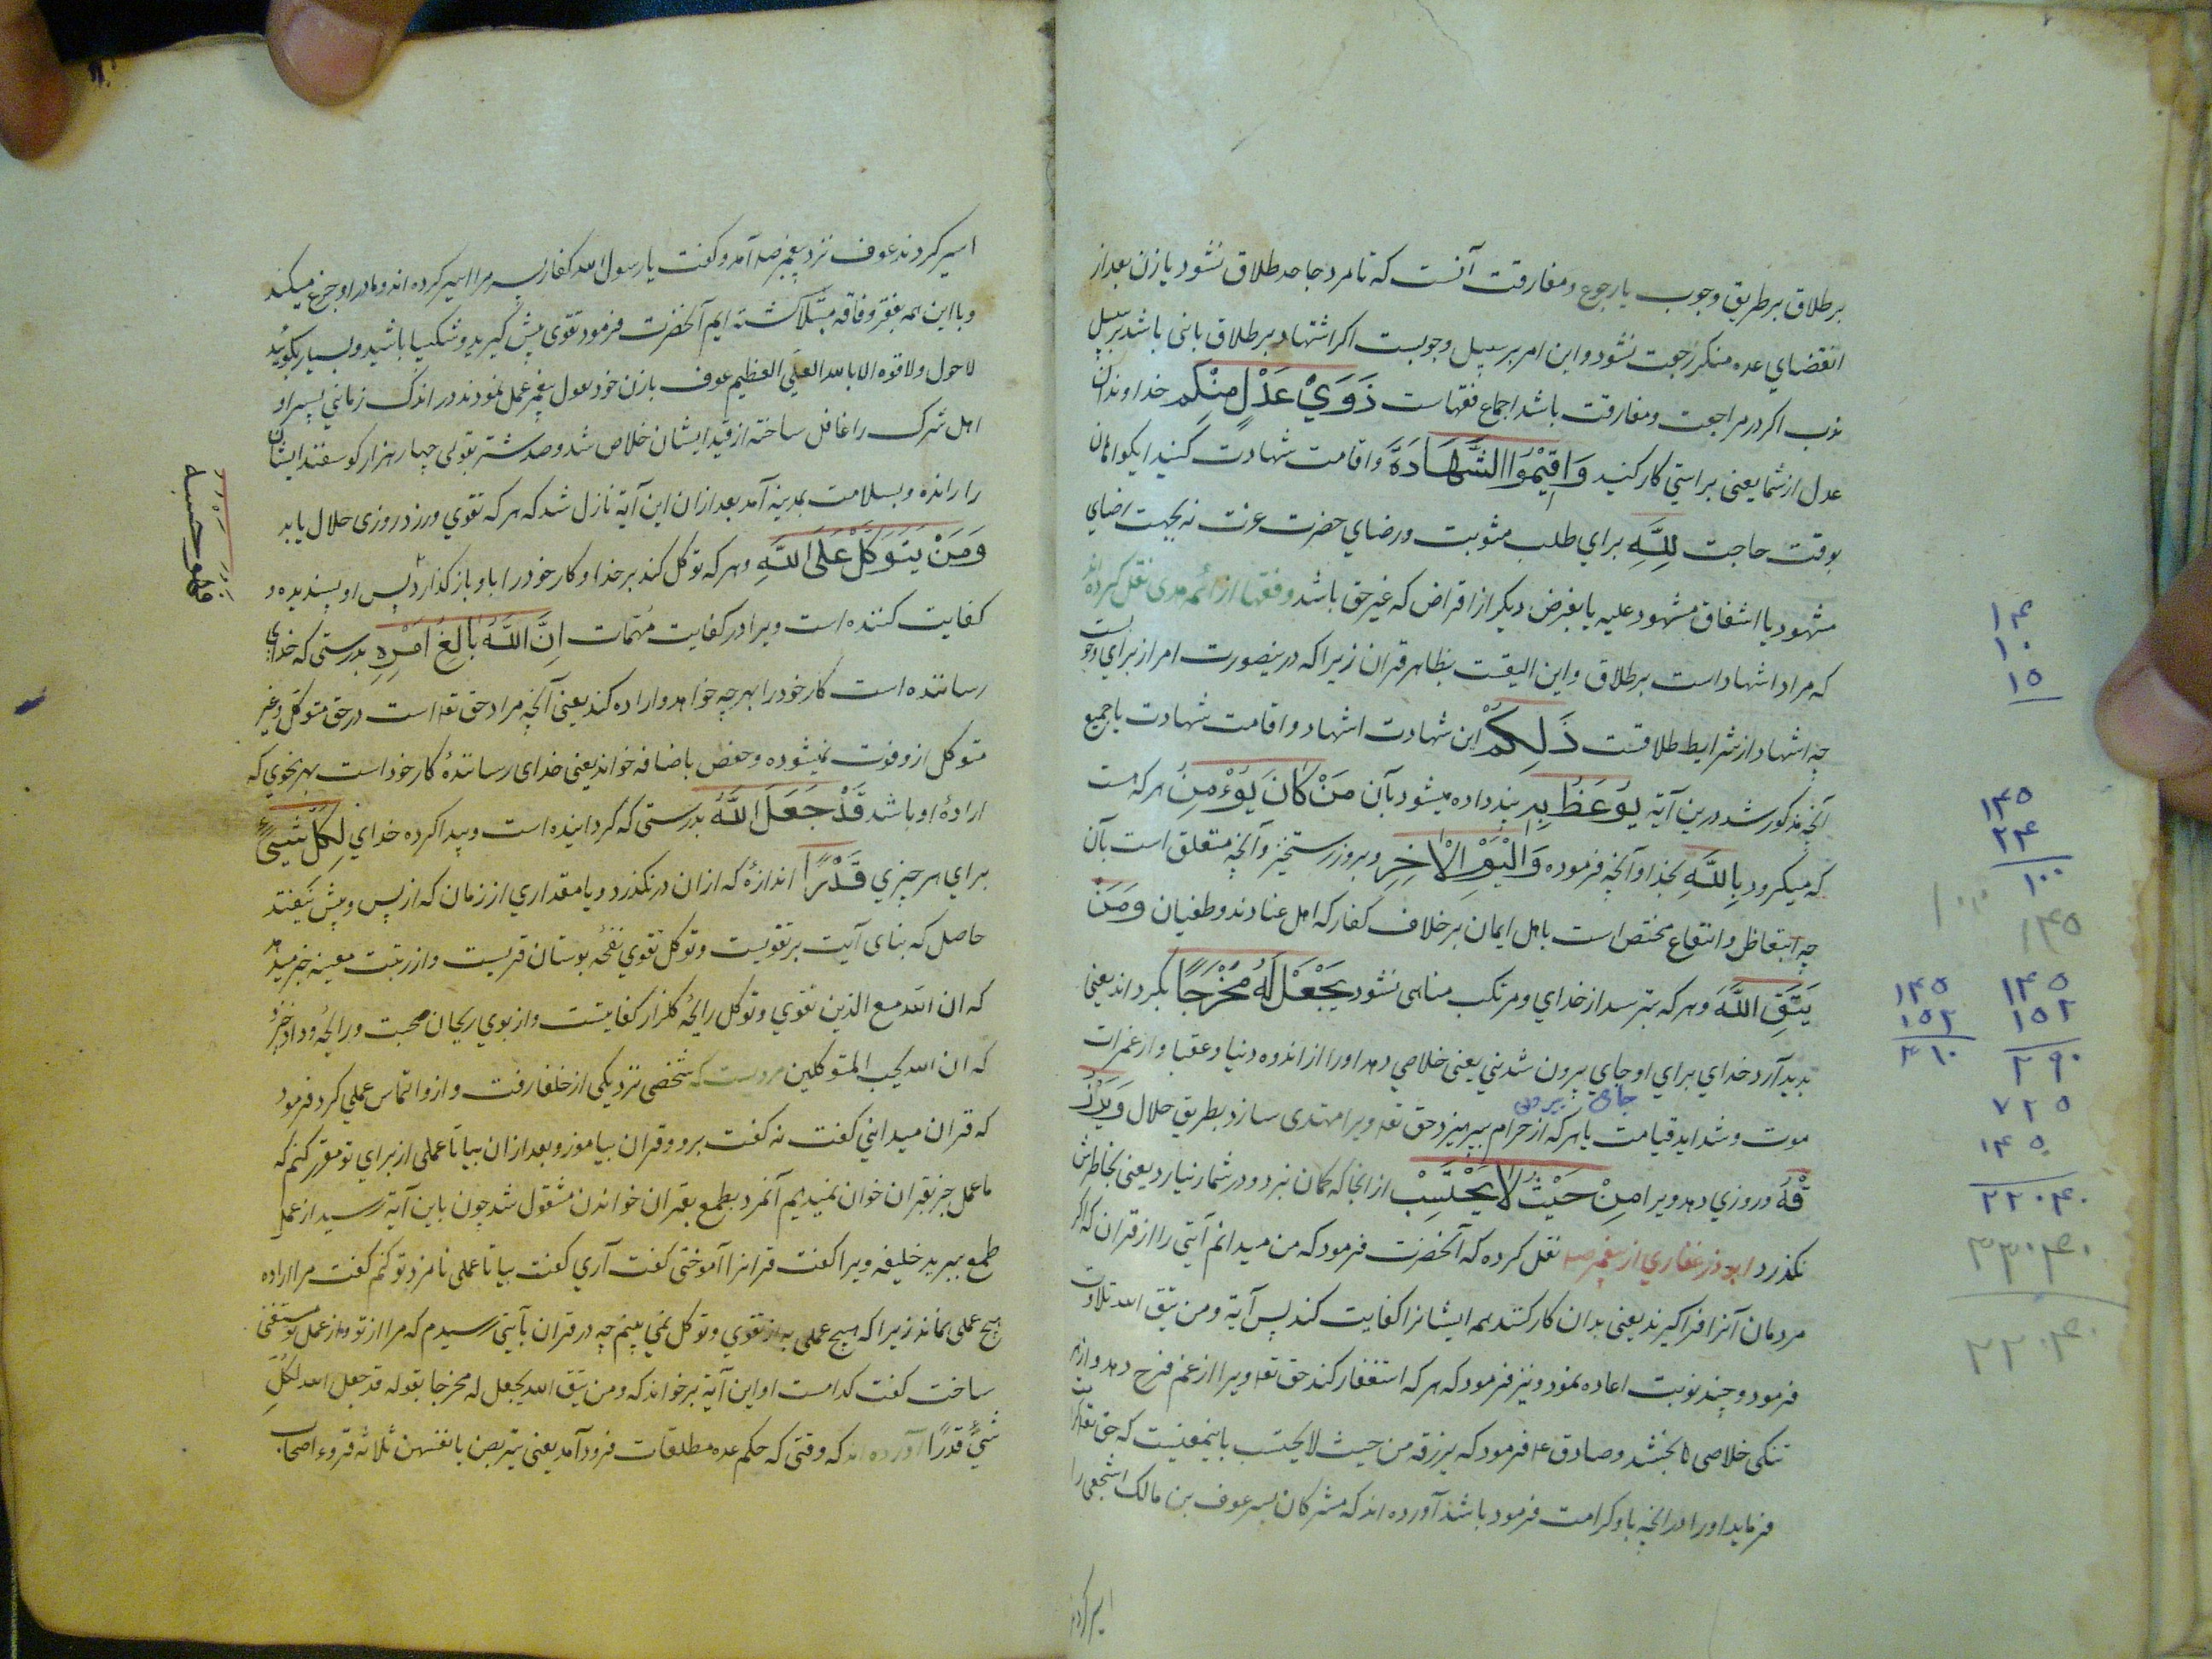 بر طلاق بر طریق وجوب یا رجوع و مفارقت آنست که تا مرد جاحد طلاق نشود یا زن بعد از
انقضای عده منکر رجعت نشود و این امر بر سبیل وجوبست اکر اشتهاد بر طلاق باینی باشد بر سبیل
ندب اکر در مراجعت و مفارقت باشد اجماع فقهاست ذَوَيْ عَدْلٍ مِنْكُم خداوندان
عدل از شما یعنی براستی کار کنید وَاَقِيْمُوا الشَّهَادَةَ و اقامت شهادت کنید ایکواهان
بوقت حاجت لِلّهِ برای طلب مثوبت و رضای حضرت عزت نه بجهت رضای
مشهود یا اشفاق مشهود علیه یا بغرض دیکر از اقراض که غیر حق باشد و فقها از ائمه هدی نقل کرده اند
که مراد اشهاد است بر طلاق و این الیقت بظاهر قران زیرا که درینصورت امر از برای وجوبست
چه اشهاد از شرایط طلاقست ذَلِكُمْ این شهادت اشهاد و اقامت شهادت یا جمیع
آنچه مذکور شد درین آیة يُوعَظُ بِهِ پند داده میشود بآن مَنْ كَانَ يُؤْمِنُ هر که هست
که میکرود بِاللَّهِ بخدا و آنچه فرموده وَالْيَوْمِ الْاٰخِرِ و بروز رستخیز و آنچه متعلق است بآن
چه اتعاظ و انتفاع مختص است باهل ایمان بر خلاف کفار که اهل عنادند و طغیان وَمَنْ
يَتَّقِ اللَّهَ و هر که بترسد از خدای و مرتکب مناهی نشود يَجْعَلْ لَهُ مَخْرَجًا بکرداند یعنی
پدید آرد خدای برای او جای بیرون شدنی یعنی خلاصی دهد او را از اندوه دنیا و عقبا و از غمرات
جای بیرون
موت و شداید قیامت یا هر که از حرام بپرهیزد حق تعه ویرا مهتدی سازد بطریق حلال وَيَرْزُ
قْهُ و روزی دهد ویرا مِنْ حَيْثُ لَا يَحْتَسِبْ از انجا که کمان نبرد و در شمار نیارد یعنی بخاطرش
نکذرد ابوذر غفاری از پیغمبر صه نقل کرده که آنحضرت فرمود که من میدانم آیتی را از قران که اکر
مردمان آنرا فراکیرند یعنی بدان کار کنند همه ایشانرا کفایت کند پس آیة و من یتق الله تلاوت
فرمود و چند نوبت اعاده نمود و نیز فرمود که هر که استغفار کند حق تعه ویرا از غم فرج دهد و از هر
تنکی خلاصی بخشد و صادق ع فرمود که یرزقه من حیث لا یحتسب باینمعنیست که حق تعه برکت
فرماید او را در آنچه باو کرامت فرمود باشد آورده اند که مشرکان پسر عوف بن مالک اشجعی را
اسیر کردند
۱۴۰
۱۰
۱۵
۱۴۵
۲۴
۱۰۰
۱۴۵
۱۴۵
۱۵۲
۲۹۰
۷۲۵
۱۴۵
۲۲۰۴۰
۱۴۵
۱۵۲
۳۱۰
۲۲۰۴۰
۲۲۰۴۰
اسیر کردند عوف نزد پیغمبر صه آمد و کفت یا رسول الله کفار پسر مرا اسیر کرده اند و مادر او جزع میکند
و با این همه بفقر و فاقه مبتلا کشته ایم آنحضرت فرمود تقوی پیش کیرید و شکیبا باشید و بسیار بکوئید
لا حول ولا قوه الا بالله العلي العظیم عوف با زن خود بقول پیغمبر عمل نمودند در اندک زمانی پسر او
اهل شرک را غافل ساخته از قید ایشان خلاص شد و صد شتر بقولی چهار هزار کوسفند ایشان
را رانده و بسلامت بمدینه آمد بعد از ان این آیة نازل شد که هر که تقوی ورزد روزی حلال یابد
وَمَنْ يَتَوَكَّلْ عَلَى اللَّهِ و هر که توکل کند بر خدا و کار خود را باو باز کذارد پس او پسندیده و
فَهُوَ حَسْبُهُ
کفایت کننده است ویرا در کفایت مهمّات اِنَّ اللَّهَ بَالِغُ اَمْرِهِ بدرستی که خدای
رساننده است کار خود را بهر چه خواهد و اراده کند یعنی آنچه مراد حق تعه است در حق متوکل و غیر
متوکل ازو فوت نمیشود و حفص باضافه خواند یعنی خدای رسانندهٔ کار خود است بهر نحوی که
ارادهٔ او باشد قَدْ جَعَلَ اللَّهُ بدرستی که کرداینده است و پیدا کرده خدای لِكُلِّ شَيْءٍ
برای هر چیزی قَدْرًا اندازهٔ که از ان درنکذرد و یا مقداری از زمان که از پس و پیش نیفتد
حاصل که بنای آیت بر تقویست و توکل تقوی نفحهٔ بوستان قربست و از رتبت معیّه خبر میدهد
که ان الله مع الذین تقوی و توکل رایحهٔ کلزار کفایتست و از بوی ریحان محبت و رایحهٔ وداد خبرد
که ان الله یحب المتوکلین مرویست که شخصی نزد یکی از خلفا رفت و ازو التماس عملی کرد فرمود
که قران میدانی کفت نه کفت برو و قران بیاموز و بعد از ان بیا تا عملی از برای تو مقرر کنم که
ما عمل جز بقران خوان نمیدیم آنمرد بطمع بقران خواندن مشغول شد چون باین آیة رسید از عمل
طمع ببرید خلیفه ویرا کفت قرانرا آموختی کفت آری کفت بیا تا عملی نامزد تو کنم کفت مرا اراده
هیچ عملی نماند زیرا که هیچ عملی به از تقوی و توکل نمی بینم چه در قران بآیتی رسیدم که مرا از تو و از عمل تو مستغنی
ساخت کفت کدامست او این آیة برخواند که و من یتق الله یجعل له مخرجا بقوله قد جعل الله لکل
شيءٍ قدرًا آورده اند که وقتی که حکم عده مطلقات فرود آمد یعنی یتربصن بانفسهن ثلاثه قروء اصحاب